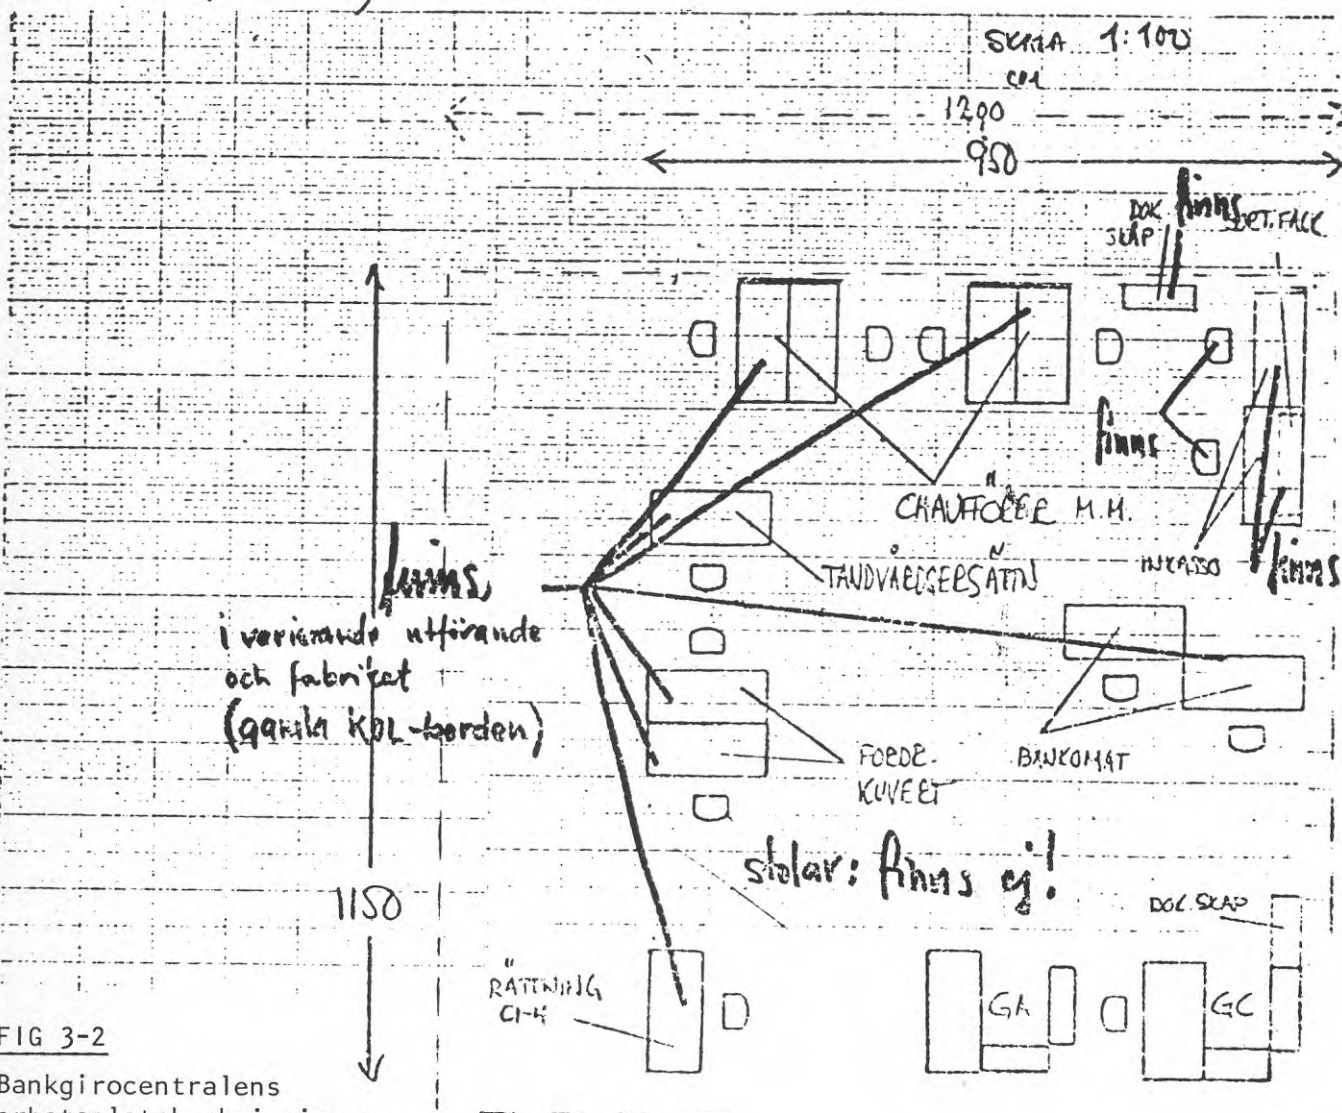 SKALA 1:100
cm
1200
950
DOK
SKÅP
finns
finns
CHAUFFÖRER M.M.
TANDVÅRDSERSÄTTN
INKASSO
finns
finns
i varierande utförande
och fabrikat
(gamla KOL-borden)
FÖRDR.
KUVERT
BANKOMAT
stolar: finns ej!
1150
DOK. SKÅP
RÄTTNING
C1-4
GA
GC
FIG 3-2
Bankgirocentralens